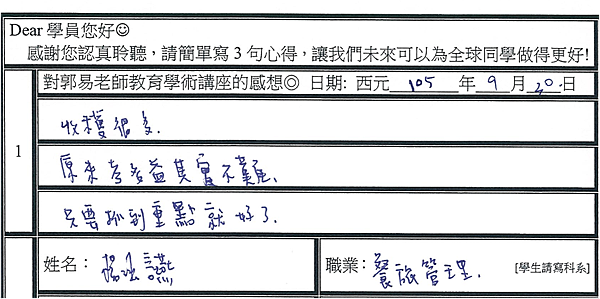 Dear 學員您好☺
感謝您認真聆聽，請簡單寫 3 句心得，讓我們未來可以為全球同學做得更好!
對郭易老師教育學術講座的感想◎ 日期: 西元 105 年 9 月 30 日
1
收穫很多.
原來考多益其實不難.
只要抓到重點就好了.
姓名: 楊 讌
職業: 餐旅管理. [學生請寫科系]